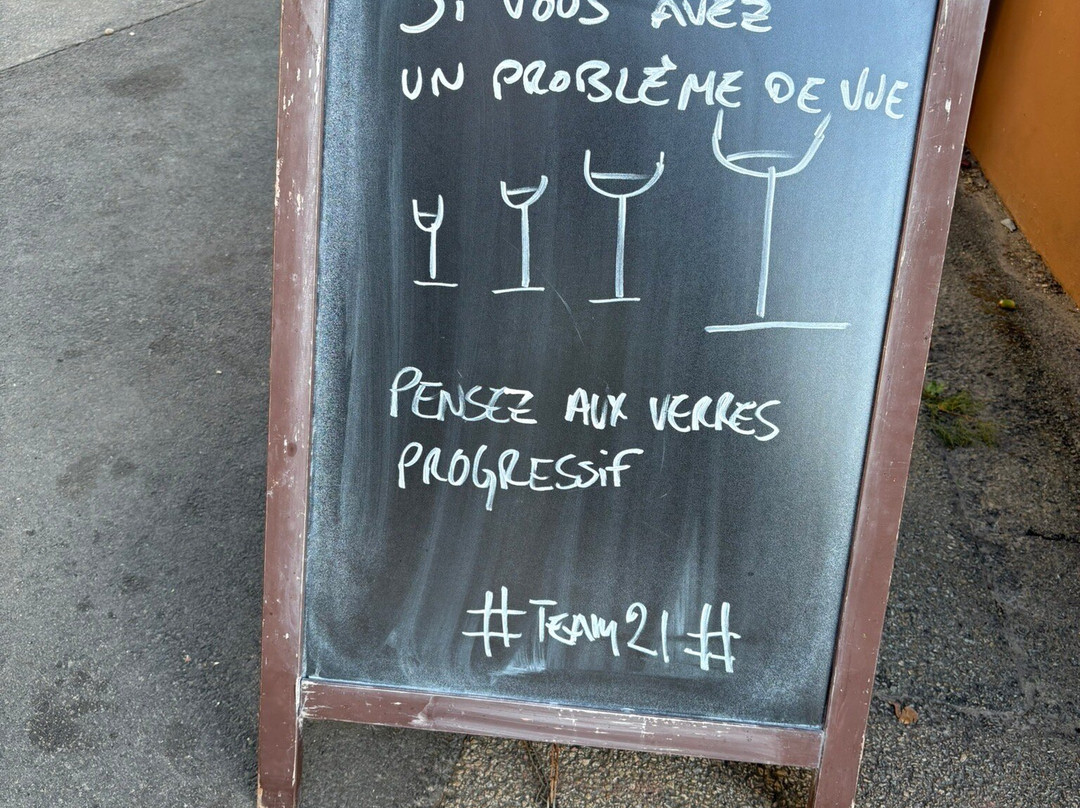 SI VOUS AVEZ
UN PROBLÈME DE VUE
PENSEZ AUX VERRES
PROGRESSIF
#TEAM21#